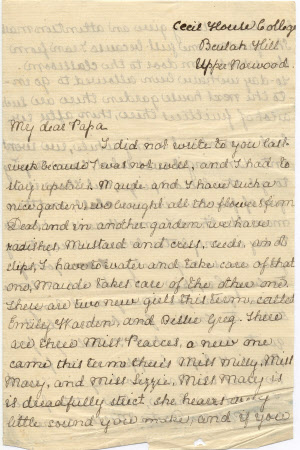 Cecil House College
Beulah Hill
Upper Norwood.
My dear Papa.
I did not write to you last
week because I was not well, and I had to
stay upstairs. Maude and I have such a
nice garden, we brought all the flowers from
Deal, and in another garden we have
radishes, Mustard and cress, seeds, and
slips, I have to water and take care of that
one, Maude takes care of the other one.
There are two new girls this term, called
Emily Warden, and Nellie Greg. There
are three Miss Pearces, a new one
came this term theirs Miss Milly, Miss
Mary, and Miss Lizzie, Miss Mary is
is dreadfully strict she hears any
little sound you make, and if you